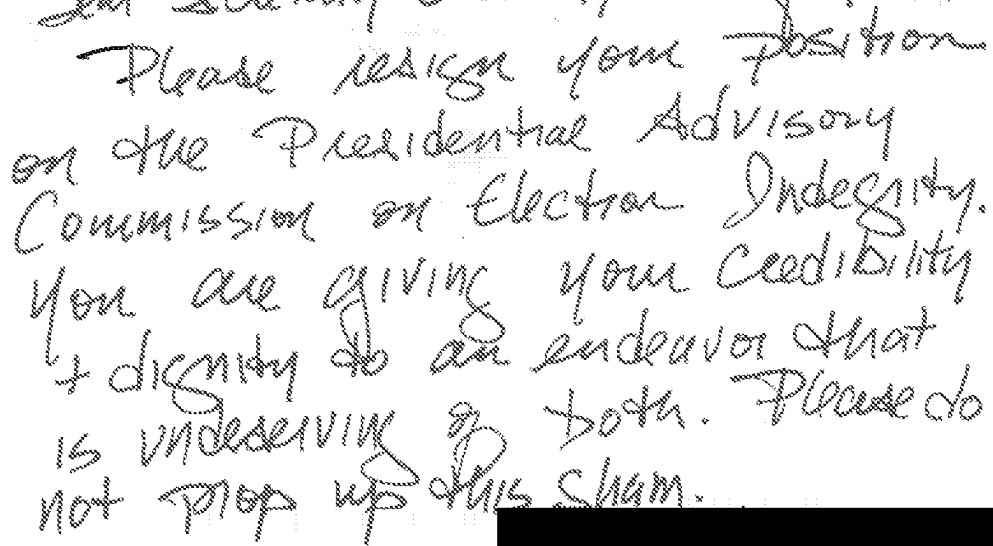 Please resign your position
on the Presidential Advisory
Commission on Election Indegrity.
You are giving your credibility
+ dignity to an endeavor that
is undeserving of both. Please do
not prop up this sham.